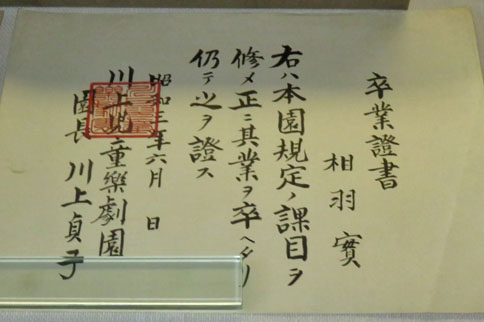 卒業證書
相羽實
右ハ本園規定ノ課目ヲ
修メ正ニ其業ヲ卒ヘタリ
仍テ之ヲ證ス
昭和三年六月 日
川上児童樂劇園
園長 川上貞子